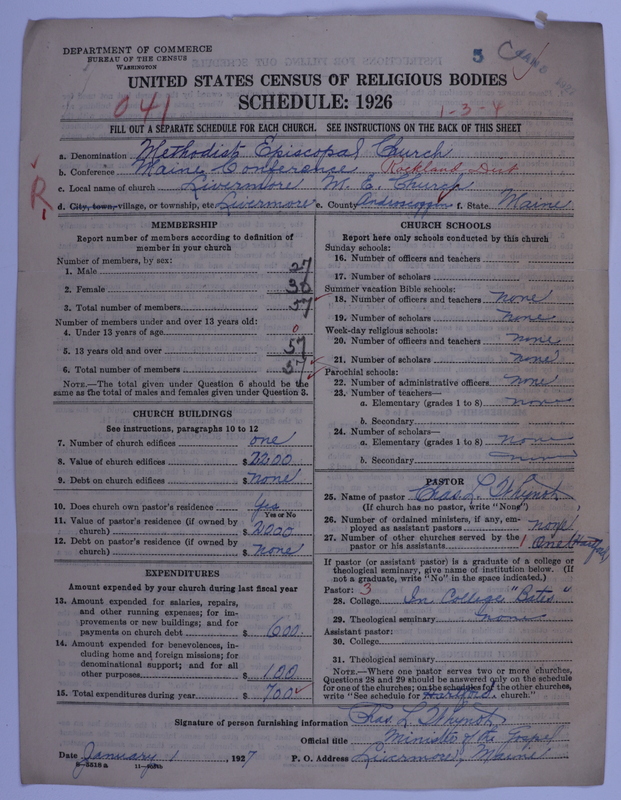 DEPARTMENT OF COMMERCE
BUREAU OF THE CENSUS
WASHINGTON
5
UNITED STATES CENSUS OF RELIGIOUS BODIES
SCHEDULE: 1926
041
1-3-4
FILL OUT A SEPARATE SCHEDULE FOR EACH CHURCH. SEE INSTRUCTIONS ON THE BACK OF THIS SHEET
a. Denomination Methodist Episcopal Church
b. Conference Maine Conference Rockland Dist
c. Local name of church Livermore M. E. Church
R
d. City, town, village, or township, etc. Livermore e. County Androscoggin f. State Maine
MEMBERSHIP
Report number of members according to definition of
member in your church
Number of members, by sex:
1. Male 27
2. Female 30
3. Total number of members 57
Number of members under and over 13 years old:
4. Under 13 years of age 0
5. 13 years old and over 57
6. Total number of members 57
NOTE.—The total given under Question 6 should be the
same as the total of males and females given under Question 3.
CHURCH BUILDINGS
See instructions, paragraphs 10 to 12
7. Number of church edifices one
8. Value of church edifices $2200
9. Debt on church edifices $none
10. Does church own pastor's residence Yes
Yes or No
11. Value of pastor's residence (if owned by
church) $2200
12. Debt on pastor's residence (if owned by
church) $none
EXPENDITURES
Amount expended by your church during last fiscal year
13. Amount expended for salaries, repairs,
and other running expenses; for im-
provements or new buildings; and for
payments on church debt $600.
14. Amount expended for benevolences, in-
cluding home and foreign missions; for
denominational support; and for all
other purposes $100
15. Total expenditures during year $700
CHURCH SCHOOLS
Report here only schools conducted by this church
Sunday schools:
16. Number of officers and teachers
17. Number of scholars
Summer vacation Bible schools:
18. Number of officers and teachers none
19. Number of scholars none
Week-day religious schools:
20. Number of officers and teachers none
21. Number of scholars none
Parochial schools:
22. Number of administrative officers none
23. Number of teachers—
a. Elementary (grades 1 to 8) none
b. Secondary
24. Number of scholars—
a. Elementary (grades 1 to 8) none
b. Secondary none
PASTOR
25. Name of pastor Chas. L. Whynot
(If church has no pastor, write "None")
26. Number of ordained ministers, if any, em-
ployed as assistant pastors none
27. Number of other churches served by the
pastor or his assistants 1 One (Hartford)
If pastor (or assistant pastor) is a graduate of a college or
theological seminary, give name of institution below. (If
not a graduate, write "No" in the space indicated.)
Pastor: 3
28. College In College "Bates"
29. Theological seminary none
Assistant pastor:
30. College
31. Theological seminary
NOTE.—Where one pastor serves two or more churches,
Questions 28 and 29 should be answered only on the schedule
for one of the churches; on the schedules for the other churches,
write "See schedule for Hartford church."
Signature of person furnishing information Chas. L. Whynot
Official title Minister of the Gospel
Date January 1, 1927 P. O. Address Livermore, Maine
8-5518 a